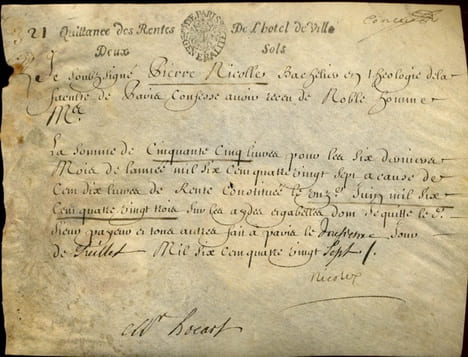 21 Quittance des Rentes De L'hotel de Ville
Deux Sols
GENERALITE DE PARIS
Je soubzsigné Pierre Nicolle Bachelier en theologie de la
faculte de Paris Confesse avoir receu de Noble homme
Mre
La somme de Cinquante Cinq livres pour les six derniers
Mois de lannée mil six Cens quatre vingt sept a cause de
Cens dix livres de Rente Constituée le unze Juin mil six
Cens quatre vingt trois sur les aydes et gabelles dont Je quitte le d.
sieur payeur et tous autres fait a paris le jour
de Juillet Mil six Cens quatre vingt sept /.
Nicolle
Mr hocart